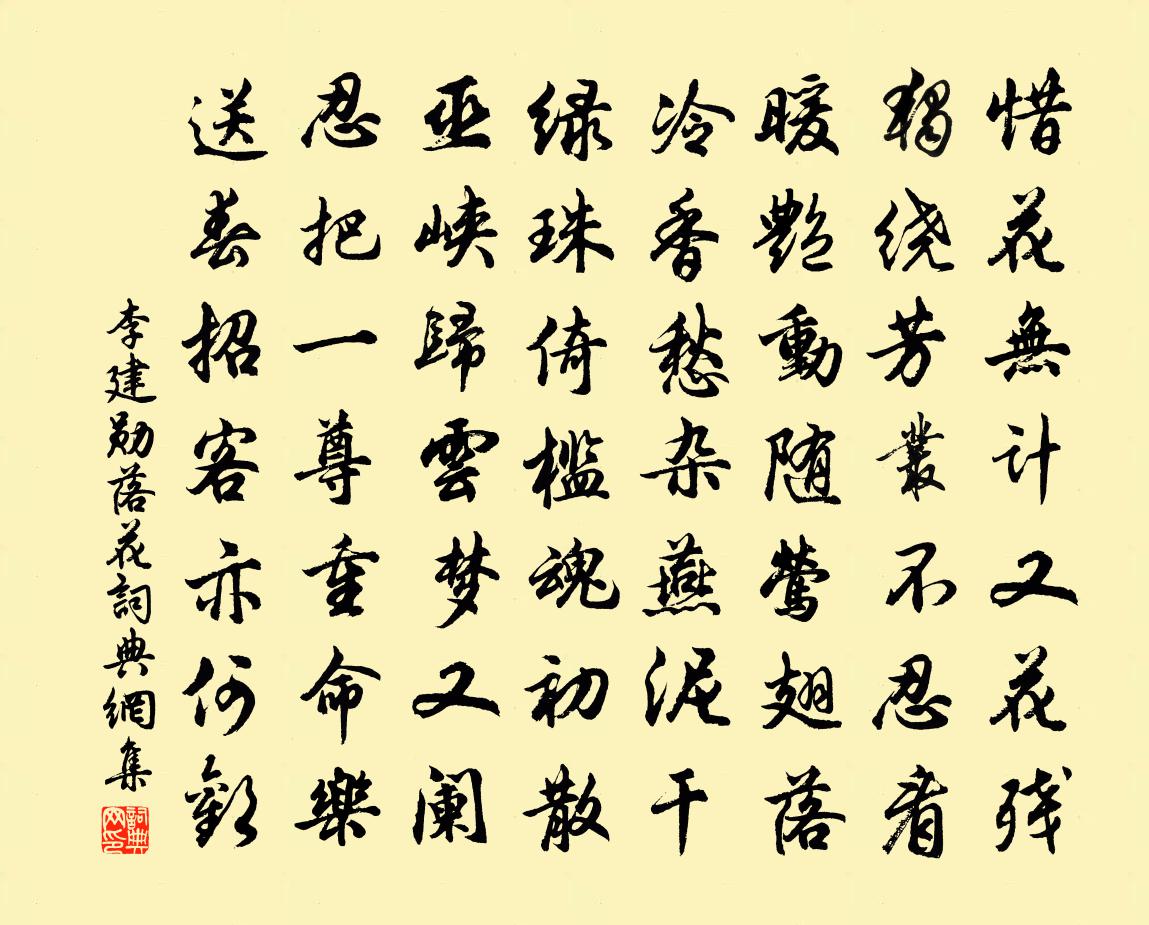 惜花無計又花残
獨绕芳叢不忍看
暖艷動随莺翅落
冷香愁杂燕泥干
绿珠倚槛魂初散
巫峡歸雲梦又阑
忍把一尊重命樂
送春招客亦何歡
李建勋落花詞典網集
詞典网印